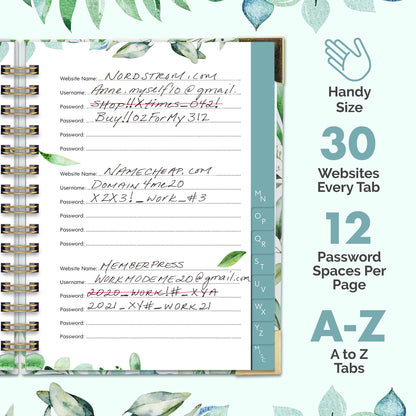 Website Name: NORDSTROM.COM
Username: Anne.myself10@gmail
Password: SHOP!!Xtimes_0421
Password: Buy!!02ForMy312
Password:
Password:
Website Name: NAMECHEAP.COM
Username: DOMAIN4me20
Password: X2X3!_WORK_#3
Password:
Password:
Password:
Website Name: MEMBERPRESS
Username: WORKMODEME20@gmail.com
Password: 2020_WORK!#_XYA
Password: 2021_XY#_WORK21
Password:
Password:
MN
OP
QR
ST
UV
WX
YZ
MISC
Handy
Size
30
Websites
Every Tab
12
Password
Spaces Per
Page
A-Z
A to Z
Tabs